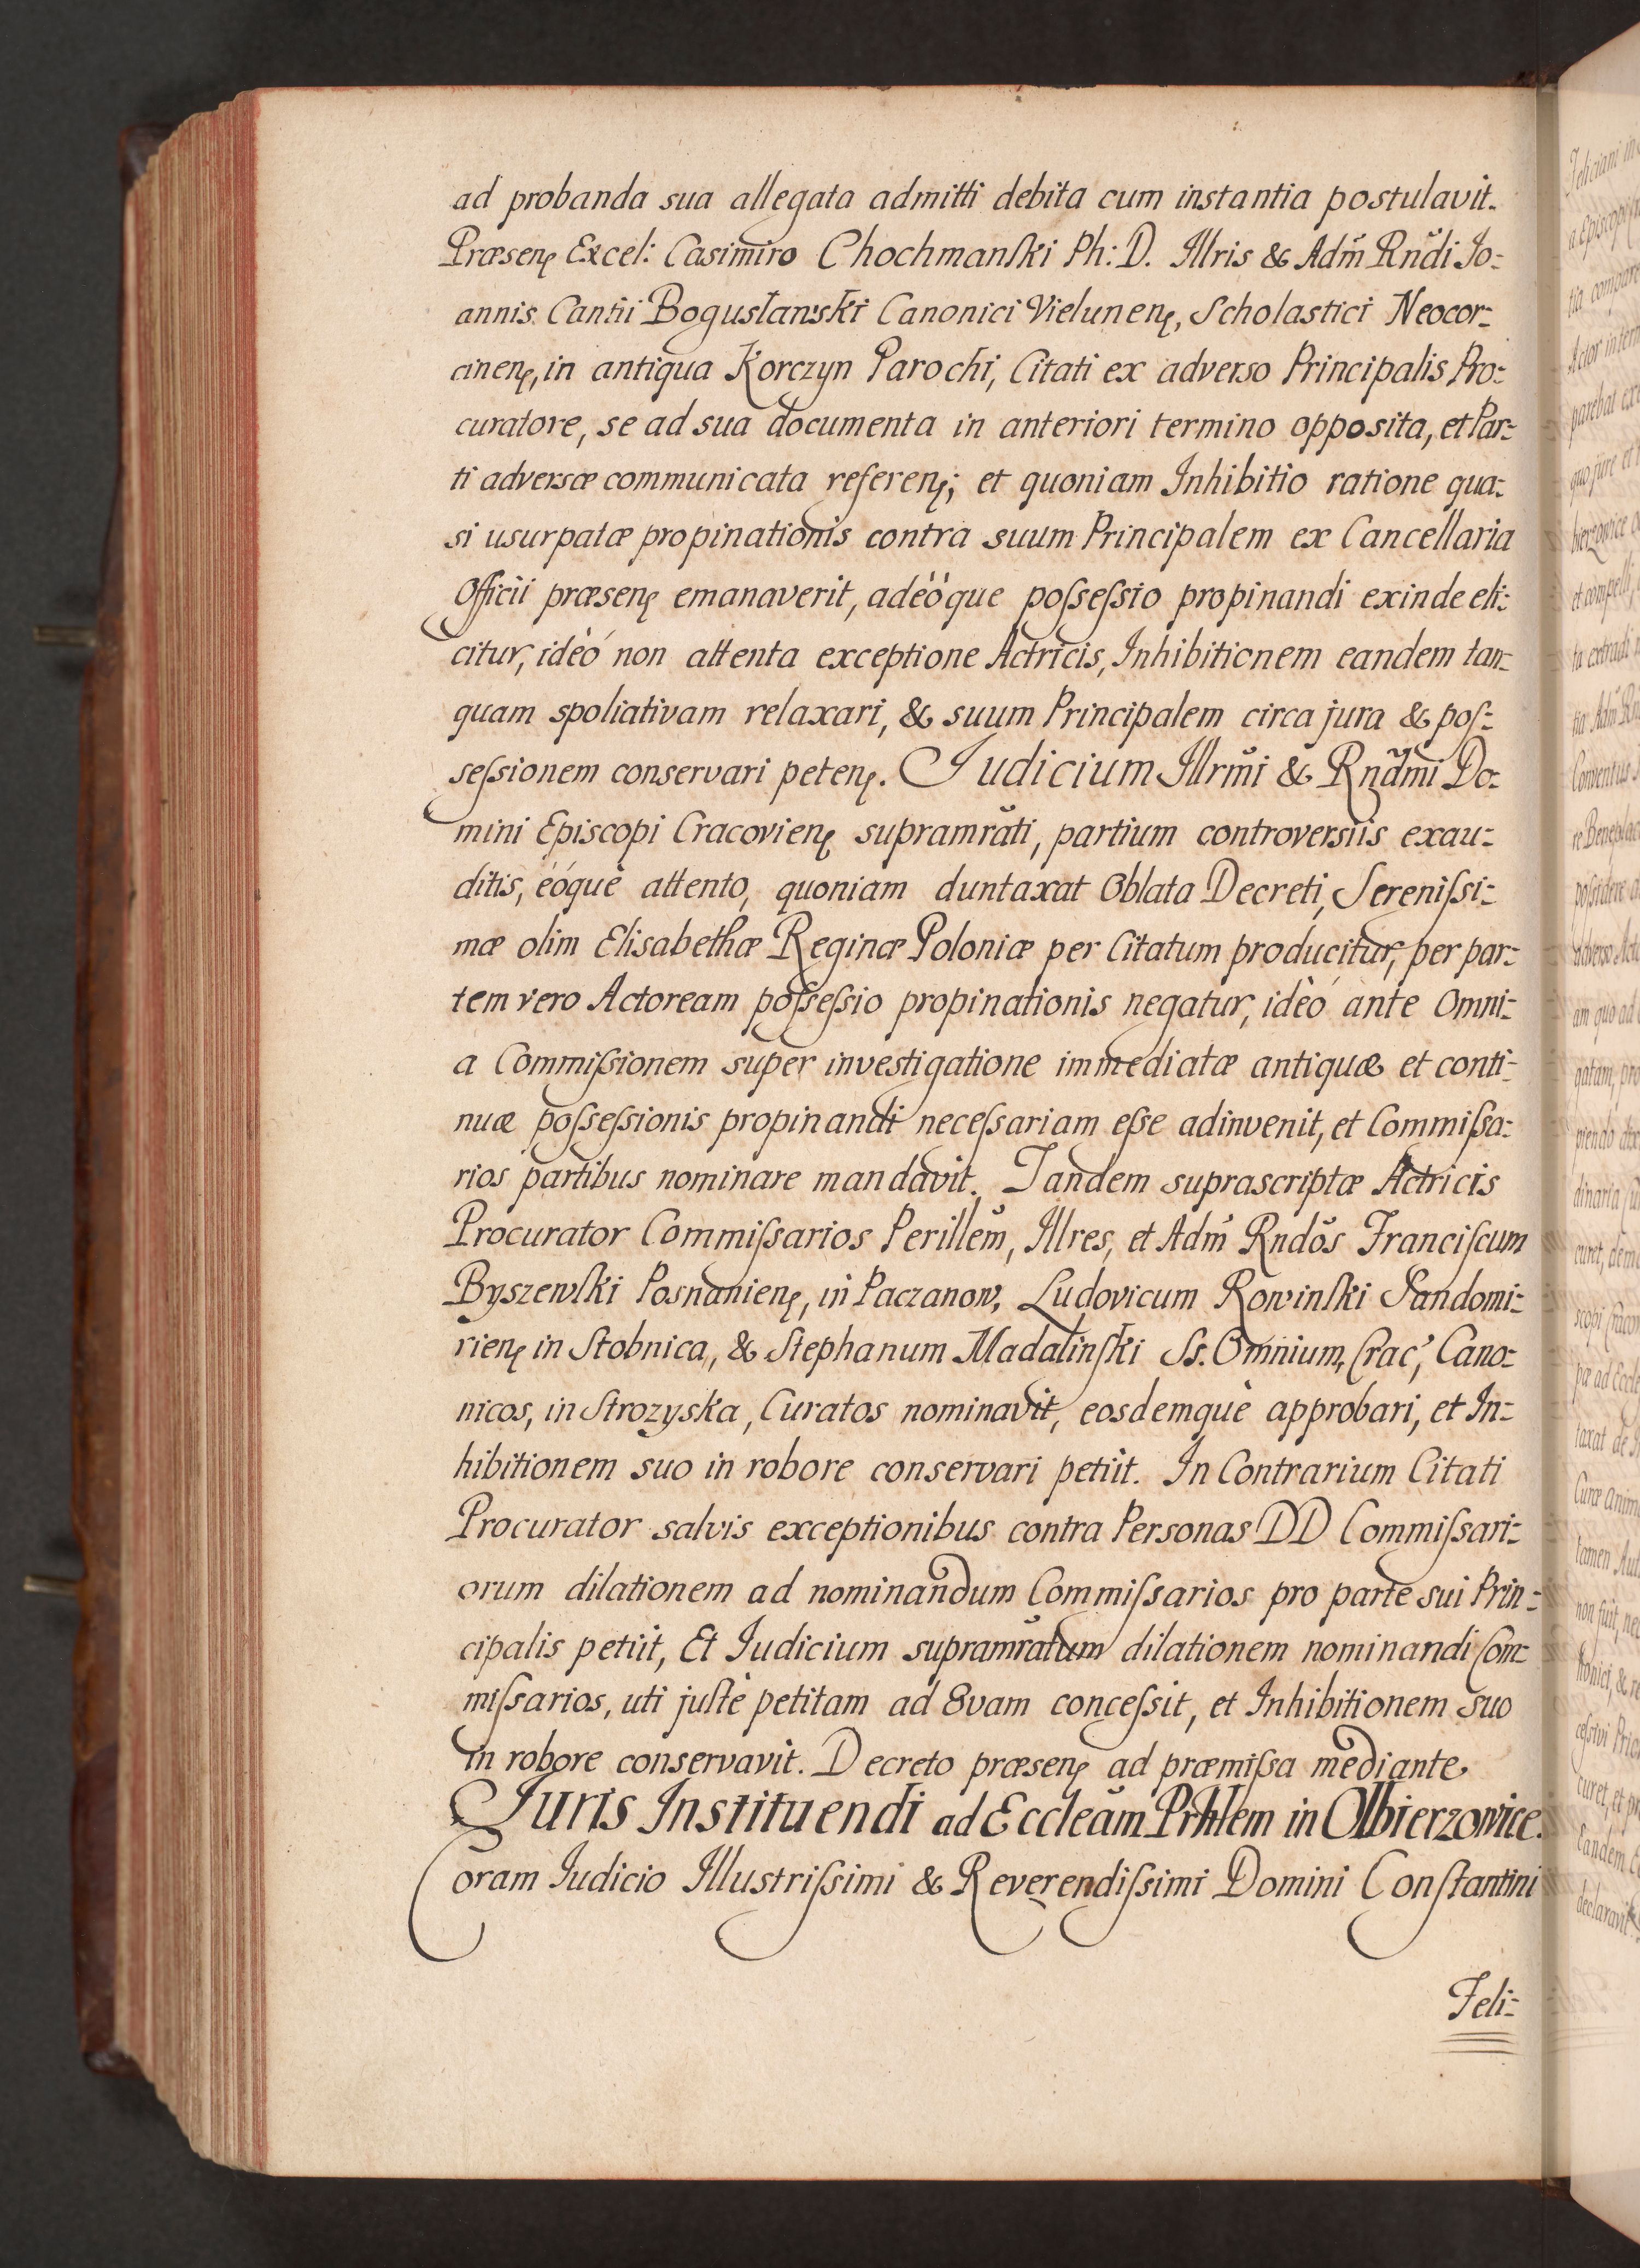 ad probanda sua allegata admitti debita cum instantia postulavit.
Præsenę Excel: Casimiro Chochmanſki Ph: D. Illris & Adm̃ Rn̆di Jo:
annis Cantii Bogusłanski Canonici Vielunenę, Scholastici Neocor:
cinenę, in antiqua Korczyn Parochi, Citati ex adverso Principalis Pro:
curatore, se ad sua documenta in anteriori termino opposita, et Par:
ti adversæ communicata referenę; et quoniam Inhibitio ratione qua:
si usurpatæ propinationis contra suum Principalem ex Cancellaria
Officii præsenę emanaverit, adèóque poſseſsio propinandi exinde eli:
citur, idèó non attenta exceptione Actricis, Inhibitionem eandem tan:
quam spoliativam relaxari, & suum Principalem circa jura & poſ:
seſsionem conservari petenę. Judicium Illrm̃i & Rn̆dm̃i Do:
mini Episcopi Cracovienę supramrăti, partium controversiis exau:
ditis, eóquè attento, quoniam duntaxat Oblata Decreti, Sereniſsi:
mæ olim Elisabethæ Reginæ Poloniæ per Citatum producitur, per par:
tem vero Actoream poſseſsio propinationis negatur, idèó ante Omni:
a Commiſsionem super investigatione immediatæ antiquæ et conti:
nuæ poſseſsionis propinandi neceſsariam eſse adinvenit, et Commiſsa:
rios partibus nominare mandavit. Tandem suprascriptæ Actricis
Procurator Commiſsarios Perillĕm, Illres, et Adm̃ Rndŏs Franciſcum
Byszewſki Posnanienę, in Paczanow, Ludovicum Rowinſki Sandomi:
rienę in Stobnica, & Stephanum Madalinſki Ss. Omnium, Crac, Cano:
nicos, in Strozyska, Curatos nominavit, eosdemquè approbari, et In:
hibitionem suo in robore conservari petiit. In Contrarium Citati
Procurator salvis exceptionibus contra Personas DD Commiſsari:
orum dilationem ad nominandum Commiſsarios pro parte sui Prin:
cipalis petiit, Et Iudicium supramrătum dilationem nominandi Com:
miſsarios, uti juſtè petitam ad 8vam conceſsit, et Inhibitionem suo
in robore conservavit. Decreto præsenę ad præmiſsa mediante
Juris Instituendi ad Eccleăm Prhlem in Olbierzowice.
Coram Iudicio Illustriſsimi & Reverendiſsimi Domini Conſtantini
Feli: